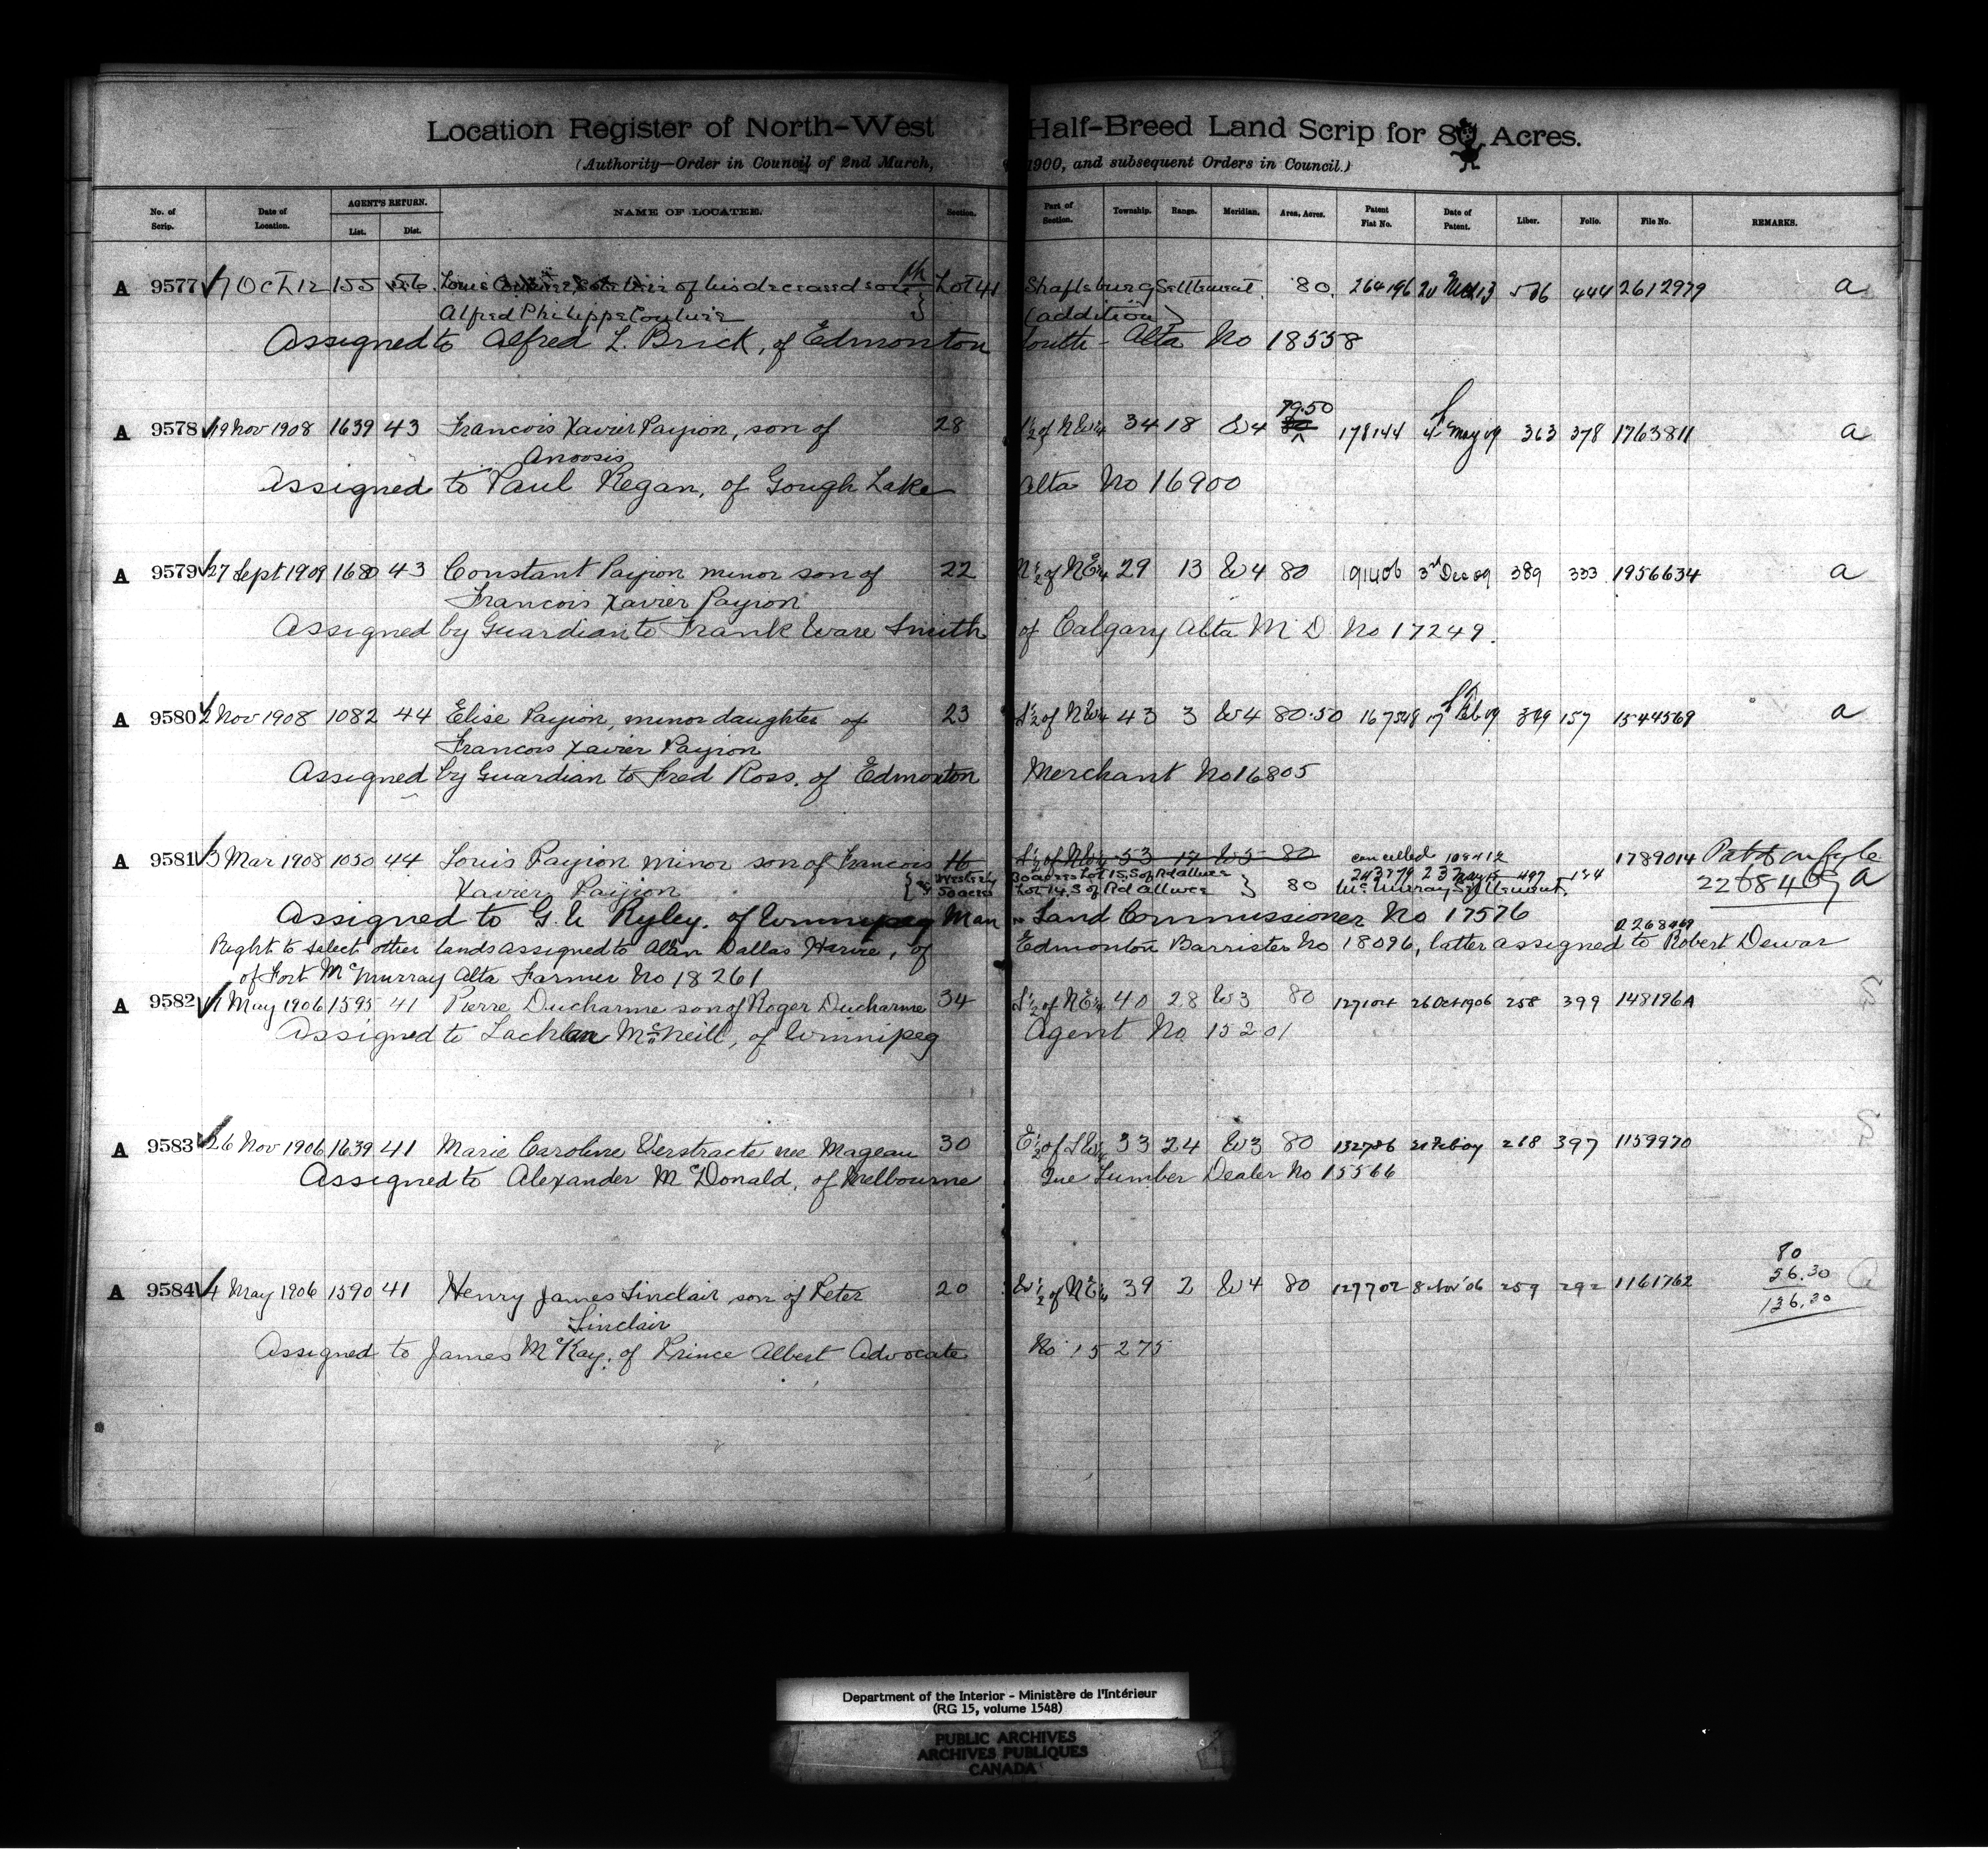 Location Register of North-West Half-Breed Land Scrip for 80 Acres.
(Authority—Order in Council of 2nd March, 1900, and subsequent Orders in Council.)
No. of Scrip. Date of Location. AGENT'S RETURN. List. Dist. NAME OF LOCATEE. Section. Part of Section. Township. Range. Meridian. Area, Acres. Patent Fiat No. Date of Patent. Liber. Folio. File No. REMARKS.
A 9577 7 Oct 12 155 56 Louis heir of his deceased son Lot 41 Shaftsburg Settlement. 80. 264196 13 444 2612979 a
Alfred Philippe Couture (addition)
Assigned to Alfred L. Brick, of Edmonton South - Alta No 18558
79.50
A 9578 19 Nov 1908 1639 43 Francois Xavier Payion, son of 28 of NW¼ 34 18 W4 80 178144 4 May 09 363 378 1763811 a
Anoosis
Assigned to Paul Regan, of Gough Lake Alta No 16900
A 9579 27 Sept 1909 1680 43 Constant Payion minor son of 22 N½ of NE¼ 29 13 W4 80 3rd Dec 09 389 333 1956634 a
Francois Xavier Payion
Assigned by Guardian to Frank Ware Smith of Calgary Alta M D No 17249.
A 9580 2 Nov 1908 1082 44 Elise Payion, minor daughter of 23 S½ of NW¼ 43 3 W4 80.50 17 Feb 09 157 1544569 a
Francois Xavier Payion
Assigned by Guardian to Fred Ross, of Edmonton Merchant No 16805
A 9581 3 Mar 1908 1050 44 Louis Payion minor son of Francois 16 S½ of NW¼ 53 17 W5 80 cancelled 1789014
Xavier Payion Westerly 50 acres 30 acres Lot 15, S of Rd allwce Lot 14, S of Rd allwce 80 243779 23 May 497 McMurray Settlement. a
Assigned to G. U Ryley. of Winnipeg Man Land Commissioner No 17576
Right to select other lands assigned to Alan Dallas Harvie, of Edmonton Barrister No 18096, latter assigned to Robert Dewar
of Fort McMurray Alta Farmer No 18261
A 9582 1 May 1906 1595 41 Pierre Ducharme son of Roger Ducharme 34 S½ of NE¼ 40 28 W3 80 26 Oct 1906 258 399 148196A
Assigned to Lachlan McNeill, of Winnipeg Agent No 15201
A 9583 26 Nov 1906 1639 41 Marie Caroline Verstracte nee Mageau 30 E½ of SW¼ 33 24 W3 80 132786 268 397 1159970
Assigned to Alexander McDonald, of Melbourne Que Lumber Dealer No 15566
80
56.30
136.30
A 9584 4 May 1906 1590 41 Henry James Sinclair son of Peter 20 W½ of NE¼ 39 2 W4 80 127702 8 Nov '06 259 292 1161762
Sinclair
Assigned to James McKay, of Prince Albert Advocate No 15275
Department of the Interior - Ministère de l'Intérieur
(RG 15, volume 1548)
PUBLIC ARCHIVES
ARCHIVES PUBLIQUES
CANADA